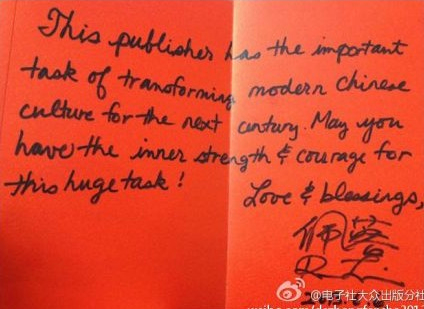 This publisher has the important
task of transforming modern Chinese
culture for the next century. May you
have the inner strength & courage for
this huge task!
Love & blessings,
@电子社大众出版分社